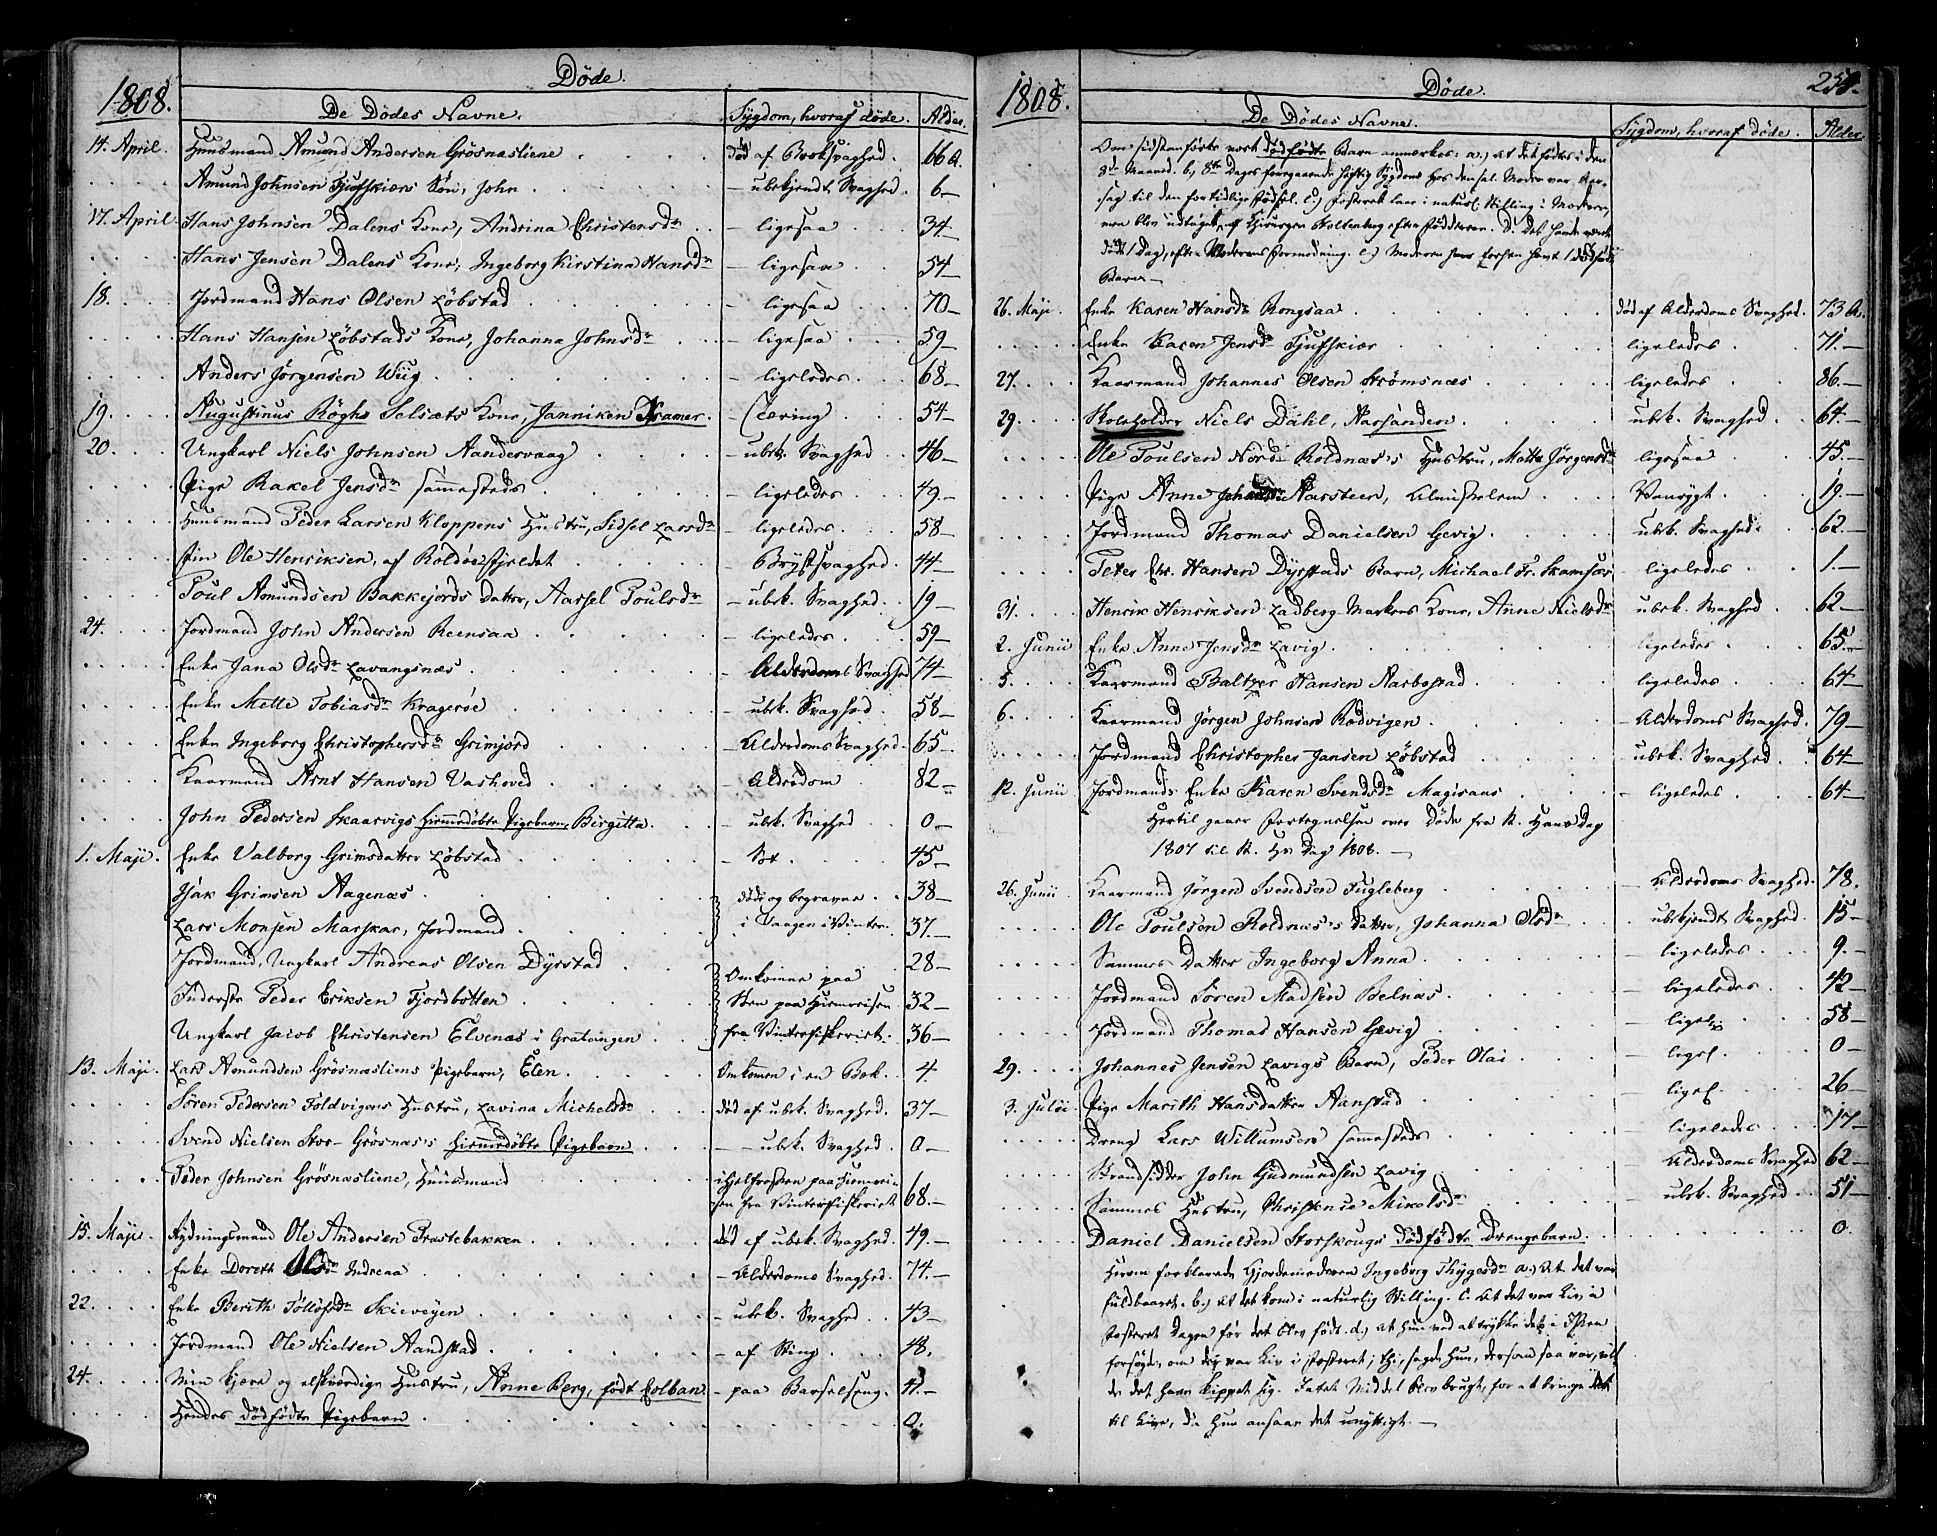 1808. Døde.
De Dødes Navne. Sÿgdom, hvoraf døde. Alder.
14. April. Huusmand Amund Andersen Grösnæsliene død af Brÿstsvaghed. 66 A.
Amund Johnsen Tjufskiærs Søn, John – ubekjendt Svaghed. 6.–
17. April Hans Johnsen Dalens Kone, Andrina Christensdr – ligesaa 34–
Hans Jensen Dalens Kone, Ingeborg Kirstina Hansdr – ligesaa 54–
18. Jordmand Hans Olsen Löbstad – ligesaa 70–
Hans Hansen Löbstads Kone, Johanna Johnsdr – ligesaa 59–
Anders Jörgensen Wiig – ligeledes 68–
19. Augustinus Röghs Selsæts Kone, Janniken Kramer. – (Tæring) 54–
20. Ungkarl Niels Johnsen Aandervaag – ubek. Svaghed 46–
Pige Rakel Jensdr sammesteds – ligeledes 49–
Huusmand Peder Larsen Kloppens Hustru, Sidsel Larsdr – ligeledes 58–
Fin Ole Henriksen, af Roldöefjeldet – Brÿstsvaghed 44–
Poul Amundsen Bakkejords Datter, Aassel Poulsdr – ubek. Svaghed. 19–
24. Jordmand John Andersen Reensaa – ligeledes 59–
Enke Jana Olsdr Lavangsnæs. – Alderdoms Svaghed 74–
Enke Mette Tobiasdr Kragerøe – ubek. Svaghed. 58–
Enke Ingeborg Christophersdr Grimjord – Alderdoms Svaghed. 65–
Kaarmand Arnt Hansen Vashoved – Alderdom 82–
John Pedersen Skaarvigs hiemmedöbte Pigebarn, Birgitta. – ubek. Svaghed 0–
1. Maji. Enke Valborg Grimsdatter Löbstad – Sot. 45–
Isak Grimsen Aagenæs. døde og begravne 38–
Lars Monsen Marskar, Jordmand i Vaagen i Vinter. 37.–
Jordmand, Ungkarl Andreas Olsen Dÿrstad 28–
Omkomne paa
Inderste Peder Eriksen Fjordbotten Söen paa Hiemreisen 32–
Ungkarl Jacob Christensen Elvenæs i Gratangen fra Vinterfiskeriet. 36–
13. Maji. Lars Amundsen Grösnæsliens Pigebarn, Elen. Omkommen i en Bæk. 4.
Sören Pedersen Foldvigens Hustru, Lavina Michelsdr død af ubek. Svaghed. 37–
Svend Nielsen Stor-Grösnæs's hiemmedöbte Pigebarn – – ubek. Svaghed. 0–
Peder Johnsen Grösnæsliene, Huusmand ihielfrossen paa Hiemrei-
sen fra Vinterfiskeriet 68.–
15. Maji. Rÿdningsmand Ole Andersen Præstebakken død af ubek. Svaghed. 49.–
Enke Dorett Olsdr Indreaa – Alderdoms Svaghed. 74.–
22. Enke Berith Töllöfsdr Skieveÿen – ubek. Svaghed. 43–
Jordmand Ole Nielsen Aanstad – af Sting 48.
24. Min kjere og elskværdige Hustru, Anne Berg, født Colban. – paa Barselseng. 41.–
Hendes dödfödte Pigebarn 0.
1808. Døde. 251.
De Dødes Navne. Sÿgdom, hvoraf døde. Alder.
Om sidstanførte vort dødfødte Barn anmærkes: a.) at det fødtes i den
8de Maaned. b.) 8te Dages foregaaende heftig Sÿgdom hos den sal. Moder var Aar-
sag til den fortidlige Fødsel. c.) Fosteret laae i naturl. Stilling i Moderen,
men blev udtaget af Chirurgen Holtenberg efter Födderne. d.) Det havde været
dødt 1 Dag, efter Moderens Formodning. e.) Moderen havt forhen havt 1 dødfødt
Barn –
26. Maji. Enke Karen Hansdr Rongsaa død af Alderdoms Svaghed. 73 A.
Enke Karen Jensdr Tjufskiær ligeledes 71.–
27. Kaarmand Johannes Olsen Strømsnæs ligeledes 86.–
29. Skoleholder Niels Dahl, Aarsanden. ubek. Svaghed. 64.–
Ole Poulsen Nordr Roldnæs's Hustru, Mette Jörgensdr ligesaa 45.–
Pige Anne Johansdr Aarsteen, Almisselem Vansÿgt. 19.–
Jordmand Thomas Danielsen Gevig ubek. Svaghed. 62.–
Peter Chr. Hansen Dÿrstads Barn, Michael Fr. Skamsøe ligeledes 1.–
31. Henrik Henriksen Ladberg Markens Kone, Anne Nielsdr ubek. Svaghed 62.–
2. Junii Enke Anne Jensdr Lavig. ligeledes 65.–
5. Kaarmand Baltzer Hansen Aarbostad ligeledes 64–
6. Kaarmand Jörgen Johnsen Rodvigen – Alderdoms Svaghed. 79–
Jordmand Christopher Jansen Löbstad ubek. Svaghed. 64–
12. Junii Jordmands Enke Karen Svendsdr Magisaas – ligeledes 64–
Hertil gaaer Fortegnelsen over Døde fra St. Hans Dag
1807 til St. Hs Dag 1808. –
26. Junii Kaarmand Jörgen Svendsen Fugleberg – Alderdoms Svaghed. 78.
Ole Poulsen Roldnæs's Datter, Johanna Olsdr – ubekjendt Svaghed. 15–
Sammes Datter Ingeborg Anna – ligeledes 9.–
Jordmand Sören Madsen Belnæs – ligeledes 42–
Jordmand Thomas Hansen Gevig – ligel. 58–
29. Johannes Jensen Lavigs Barn, Peder Olai – ligel. 0–
3. Julii Pige Marith Hansdatter Aanstad – ligel. 26–
Dreng Lars Willumsen sammesteds – ligeledes 17–
Strandsidder John Gudmundsen Lavig – Alderdoms Svaghed 62–
Sammes Hustru, Christence Mikelsdr – ubek. Svaghed. 51–
Daniel Danielsen Storskougs dødfødte Drengebarn. 0.
Herom forklarede Gjordemoderen Ingeborg Thÿgesdr a.) At det var
fuldbaaret. b.) at det kom i naturlig Stilling. c. At det var Liv i
Fosteret Dagen før det blev født. d.) at hun ved at trÿkke det i Issen
forsøgte, om der var Liv i Fosteret; thi, sagde hun, dersom saa var, vil-
de det have kippet sig. Intet Middel blev brugt, for at bringe det
til Live, da hun ansaae det unÿttigt. –